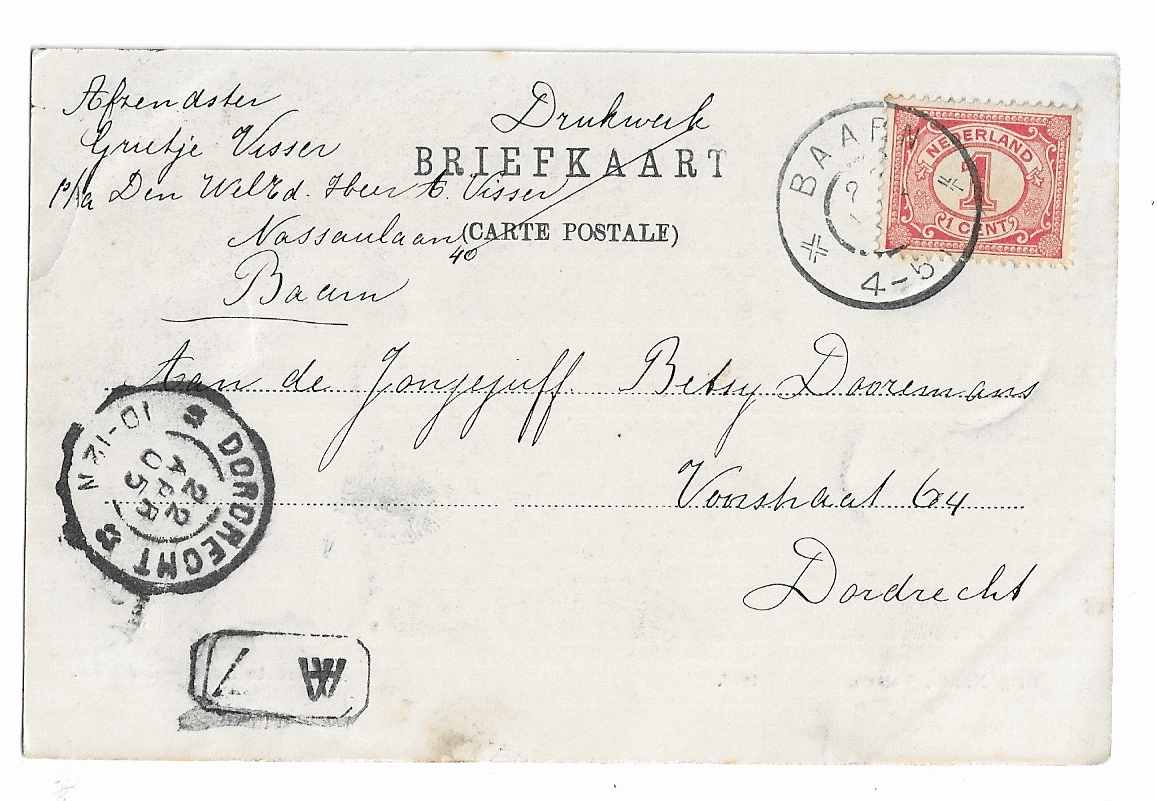 Afzendster
Grietje Visser
p/a Den WelEd. Heer C. Visser
Nassaulaan
40
Baarn
Drukwerk
BRIEFKAART
(CARTE POSTALE)
BAARN
4-5
NEDERLAND
1
1 CENT
Aan de Jongejuff. Betsy Dooremans
Voorstraat 64
Dordrecht
DORDRECHT
22
APR
05
10-12N